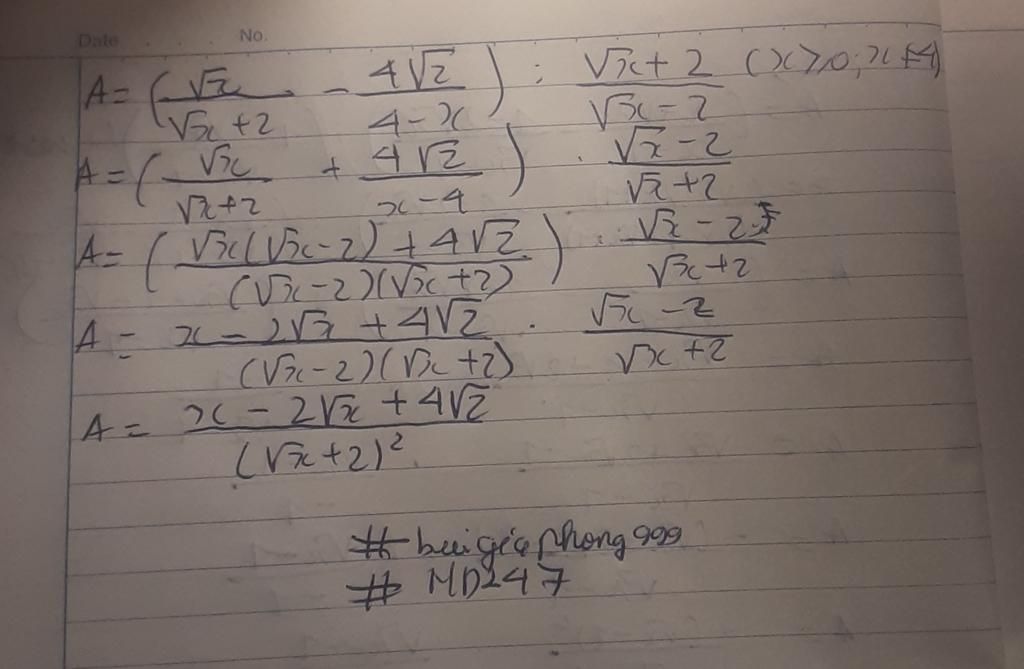 Date No.
A = (√x/(√x+2) - 4√2/(4-x)) : (√x+2)/(√x-2) (x≥0; x≠4)
A = (√x/(√x+2) + 4√2/(x-4)) . (√x-2)/(√x+2)
A = ((√x(√x-2)+4√2)/((√x-2)(√x+2))) . (√x-2)/(√x+2)
A = (x-2√x+4√2)/((√x-2)(√x+2)) . (√x-2)/(√x+2)
A = (x-2√x+4√2)/(√x+2)²
# buigiaphong999
# MD247